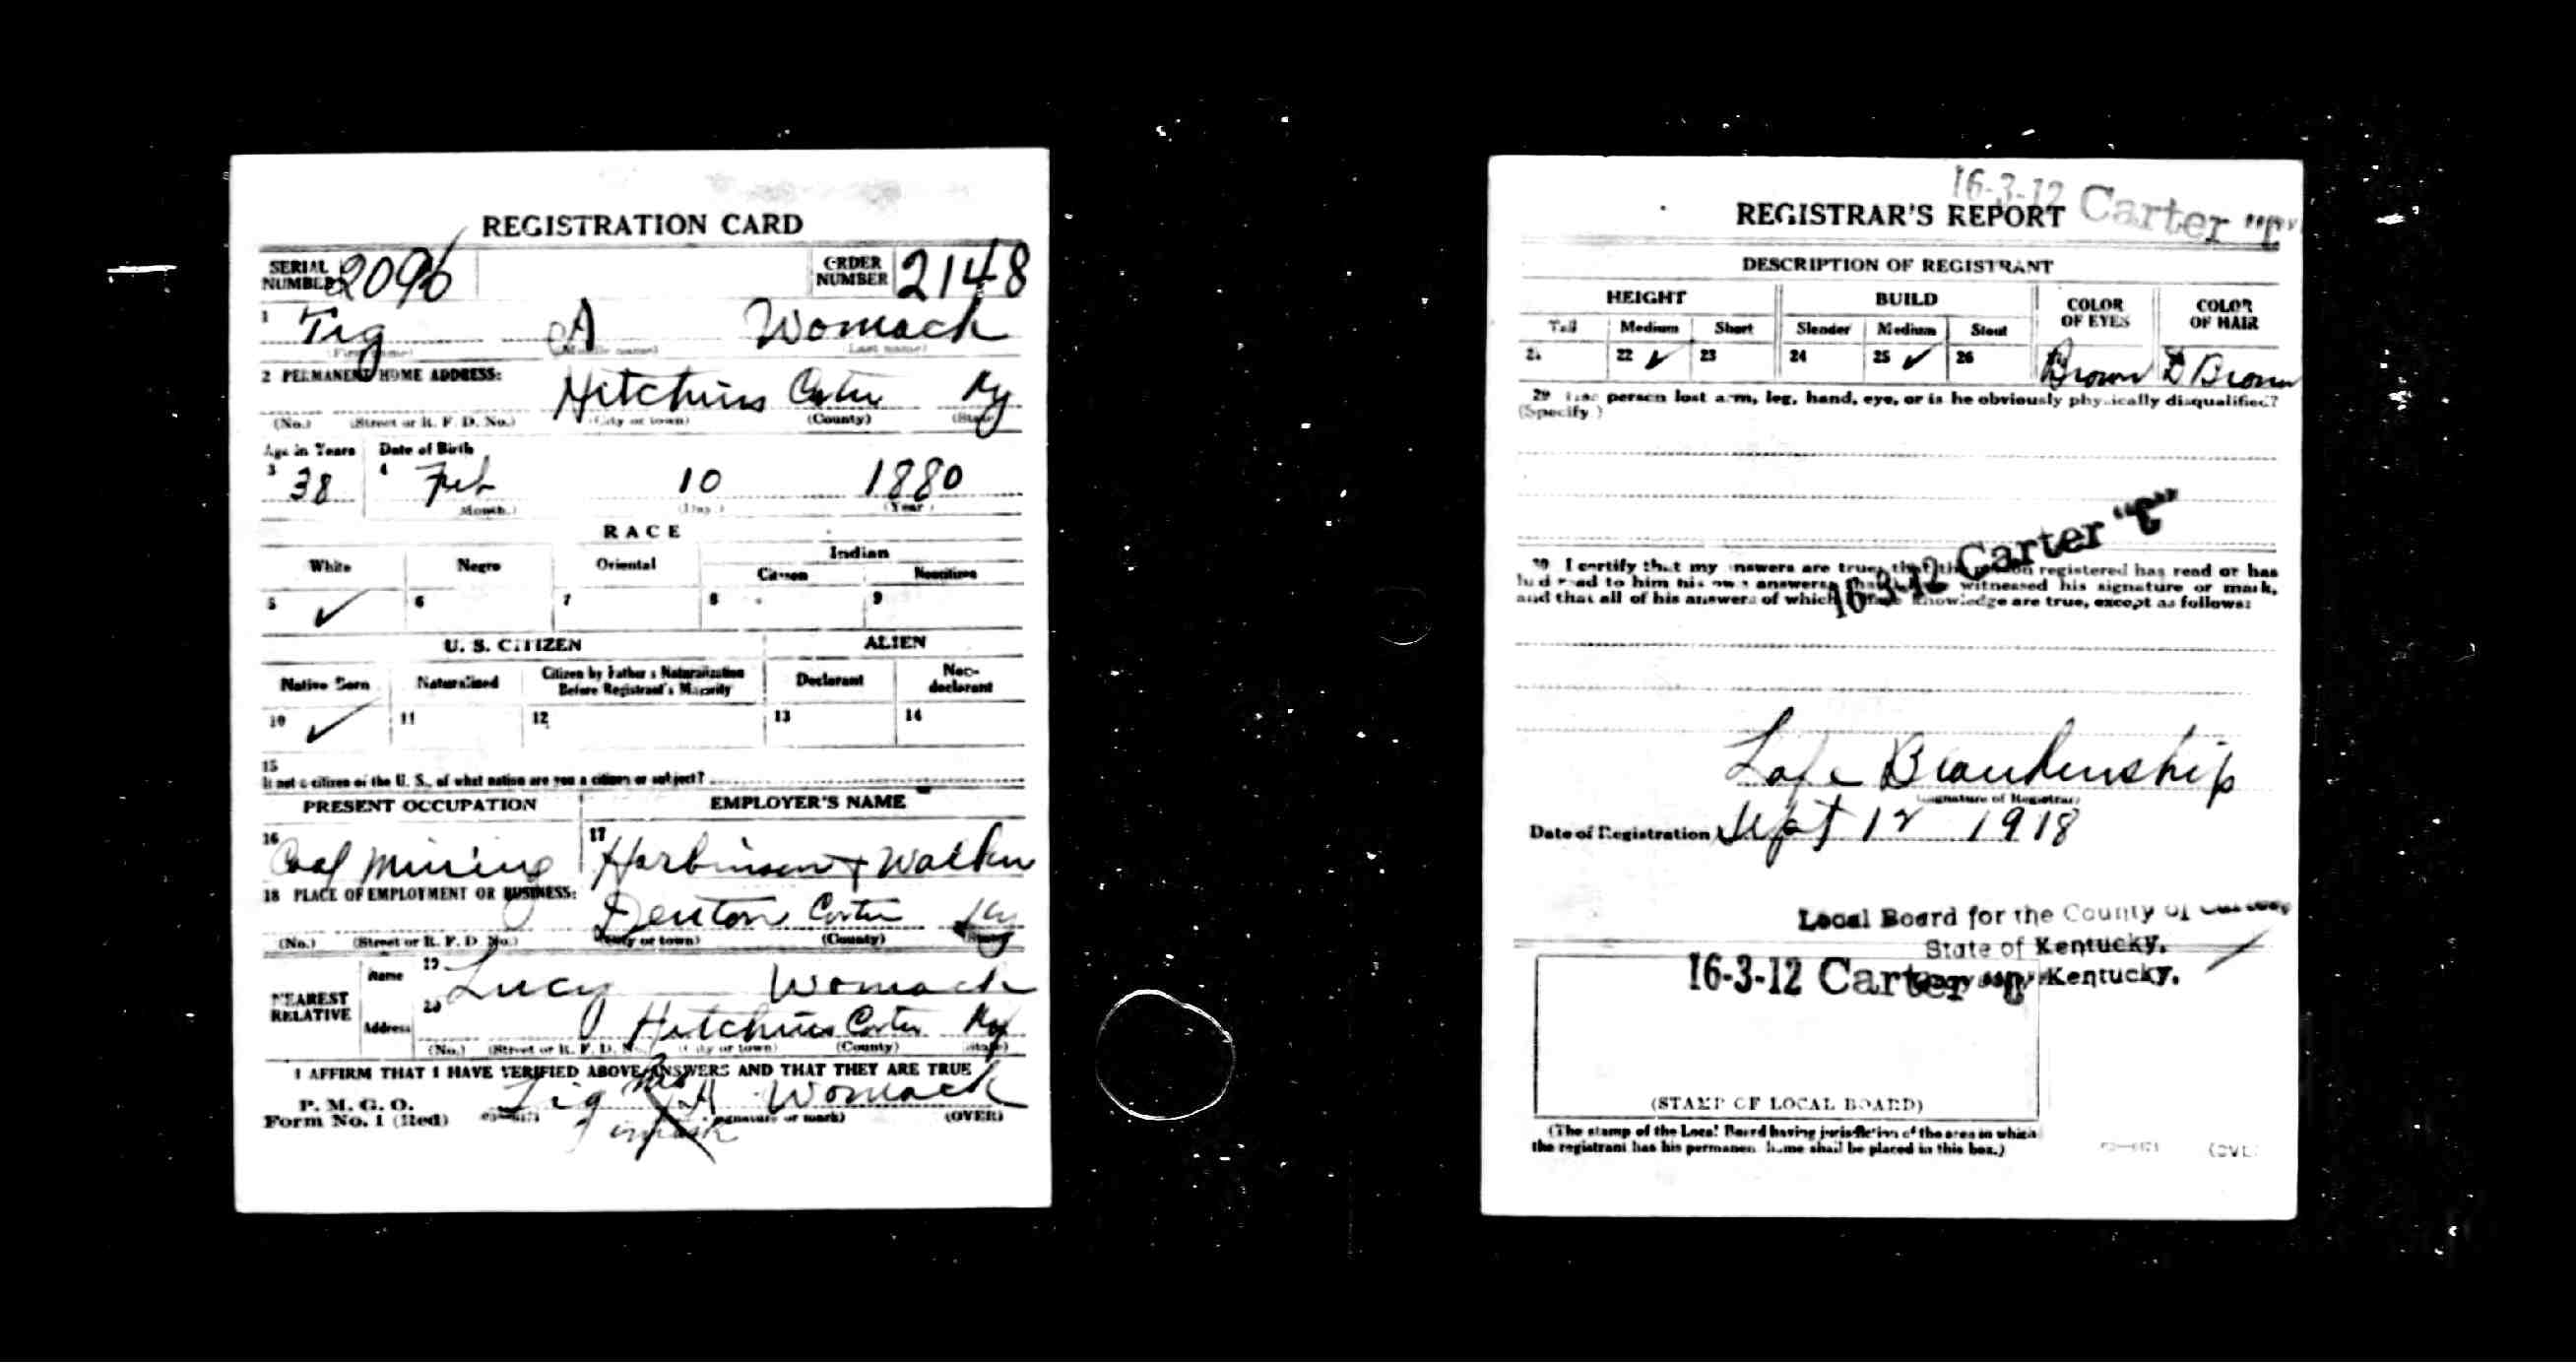 REGISTRATION CARD
SERIAL NUMBER 2096 ORDER NUMBER 2148
1 Tig A Womack
(First name) (Middle name) (Last name)
2 PERMANENT HOME ADDRESS:
Hitchins Carter Ky
(No.) (Street or R. F. D. No.) (City or town) (County) (State)
Age in Years Date of Birth
3 38 4 Feb 10 1880
(Month.) (Day.) (Year)
RACE
White Negro Oriental Indian
Citizen Noncitizen
5 ✓ 6 7 8 9
U. S. CITIZEN ALIEN
Native Born Naturalized Citizen by Father's Naturalization Before Registrant's Majority Declarant Non-declarant
10 ✓ 11 12 13 14
15
If not a citizen of the U. S., of what nation are you a citizen or subject?
PRESENT OCCUPATION EMPLOYER'S NAME
16 Coal Mining 17 Harbinson + Walker
18 PLACE OF EMPLOYMENT OR BUSINESS:
Denton Carter Ky
(No.) (Street or R. F. D. No.) (City or town) (County) (State)
NEAREST RELATIVE
Name 19 Lucy Womack
Address 20 Hitchins Carter Ky
(No.) (Street or R. F. D. No.) (City or town) (County) (State)
I AFFIRM THAT I HAVE VERIFIED ABOVE ANSWERS AND THAT THEY ARE TRUE
P. M. G. O.
Form No. 1 (Red)
Tig A Womack
(Signature or mark) (OVER)
16-3-12 Carter
REGISTRAR'S REPORT
DESCRIPTION OF REGISTRANT
HEIGHT BUILD COLOR OF EYES COLOR OF HAIR
Tall Medium Short Slender Medium Stout
21 22 ✓ 23 24 25 ✓ 26 Brown D Brown
29 Has person lost arm, leg, hand, eye, or is he obviously physically disqualified?
(Specify.)
16-3-12 Carter "C"
30 I certify that my answers are true; that the person registered has read or has
had read to him his own answers; that witnessed his signature or mark,
and that all of his answers of which knowledge are true, except as follows:
Lafe Blankenship
(Signature of Registrar)
Date of Registration Sept 12 1918
Local Board for the County of Carter
State of Kentucky.
16-3-12 Carter
Kentucky.
(STAMP OF LOCAL BOARD)
(The stamp of the Local Board having jurisdiction of the area in which
the registrant has his permanent home shall be placed in this box.)
(OVER)